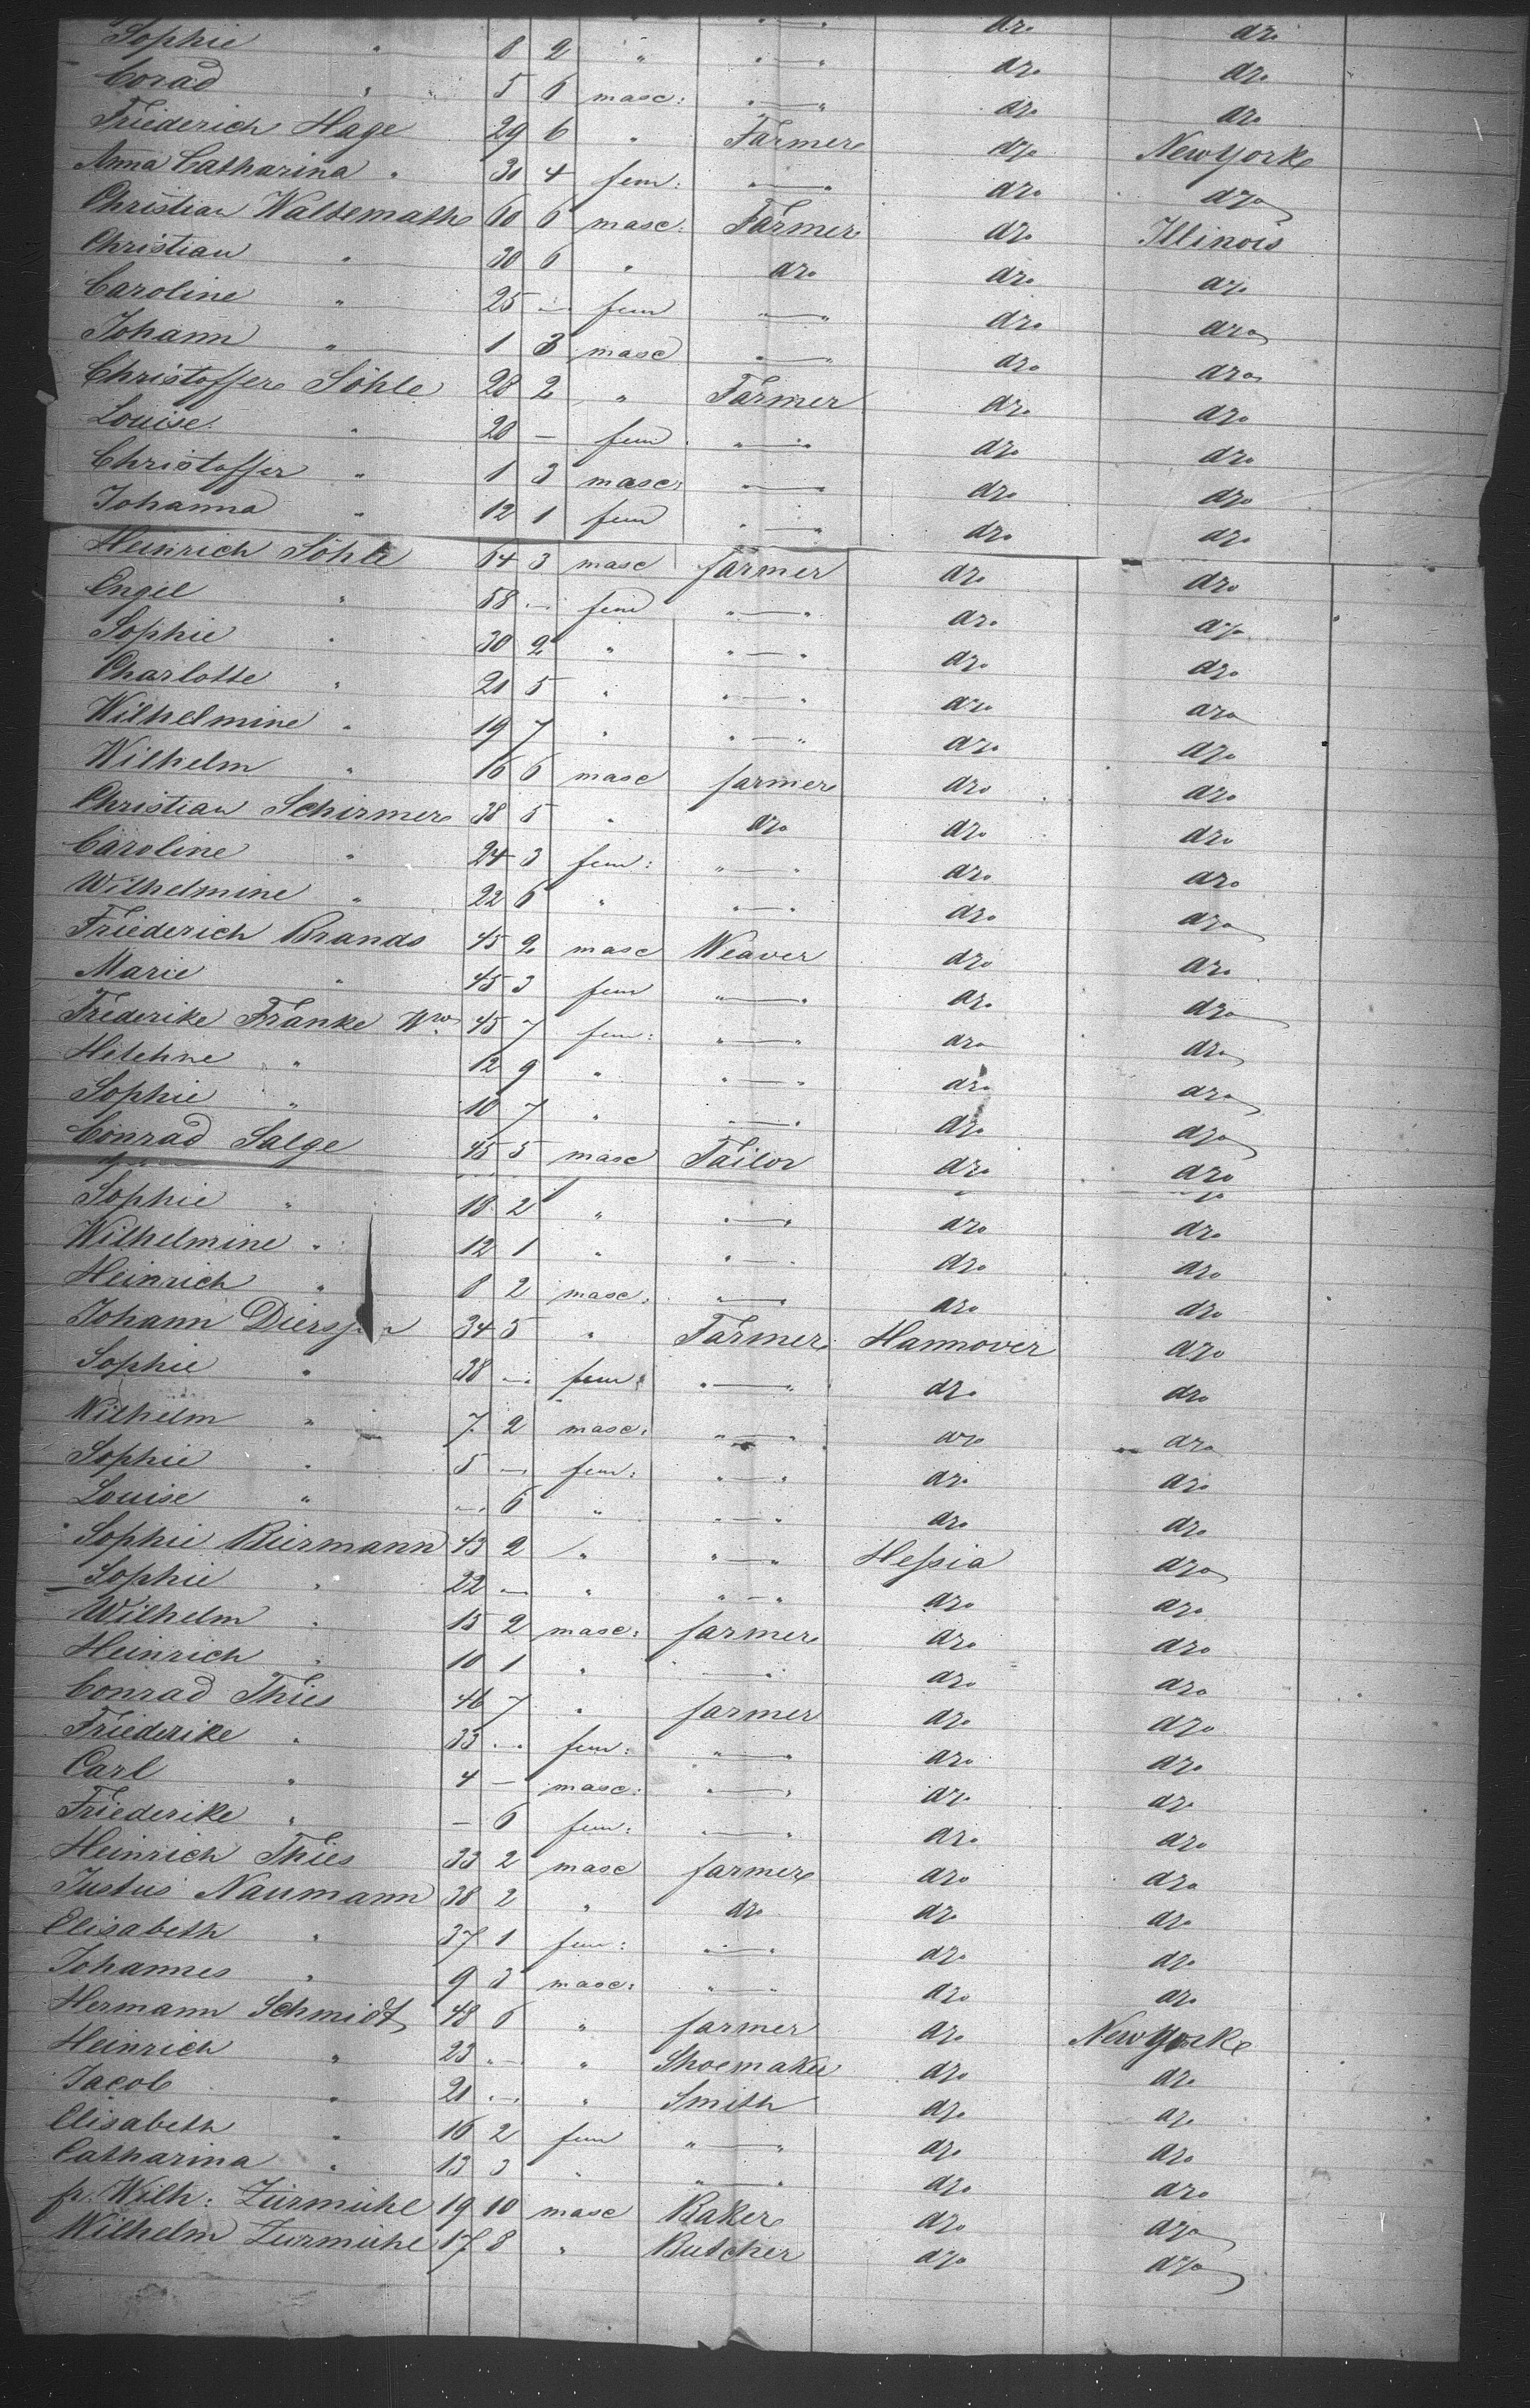 do do
Sophie " 8 2 " " — " do do
Corad " 5 6 masc: " — " do do
Friederich Hage 29 6 " Farmer do New York
Anna Catharina " 30 4 fem: " — " do do
Christian Waltemath 60 6 masc: Farmer do Illinois
Christian " 30 6 " do do do
Caroline " 25 — fem " — " do do
Johann " 1 3 masc " — " do do
Christoffer Söhle 28 2 " Farmer do do
Louise " 28 — fem " — " do do
Christoffer " 1 3 masc: " — " do do
Johanna " 12 1 fem " — " do do
Heinrich Söhle 64 3 masc farmer do do
Engel " 58 — fem " — " do do
Sophie " 30 2 " " — " do do
Charlotte " 21 5 " " — " do do
Wilhelmine " 19 7 " " — " do do
Wilhelm " 16 6 masc farmer do do
Christian Schirmer 38 5 " do do do
Caroline " 24 3 fem: " — " do do
Wilhelmine " 22 6 " " — " do do
Friederich Brands 45 2 masc Weaver do do
Marie " 45 3 fem " — " do do
Frederike Franke Ww 45 7 fem: " — " do do
Helehne " 12 9 " " — " do do
Sophie " 10 7 " " — " do do
Conrad Salge 45 5 masc Tailor do do
Sophie " 18 2 " " — " do do
Wilhelmine " 12 1 " " — " do do
Heinrich " 8 2 masc: " — " do do
Johann Diers 34 5 " Farmer Hannover do
Sophie " 38 — fem: " — " do do
Wilhelm " 7 2 masc: " — " do do
Sophie " 5 — fem: " — " do do
Louise " — 6 " " — " do do
Sophie Biermann 43 2 " " — " Hessia do
Sophie " 22 — " " — " do do
Wilhelm " 15 2 masc: farmer do do
Heinrich " 10 1 " " — " do do
Conrad Thies 46 7 " farmer do do
Friederike " 33 — fem: " — " do do
Carl " 4 — masc: " — " do do
Friederike " — 6 fem: " — " do do
Heinrich Thies 33 2 masc farmer do do
Justus Naumann 38 2 " do do do
Elisabeth " 37 1 fem: " — " do do
Johannes " 9 3 masc: " — " do do
Hermann Schmidt 48 6 " farmer do New York
Heinrich " 23 — " Shoemaker do do
Jacob " 21 — " Smith do do
Elisabeth " 16 2 fem " — " do do
Catharina " 13 3 " " — " do do
fr. Wilh: Zurmühl 19 10 masc Baker do do
Wilhelm Zurmühl 17 8 " Butcher do do